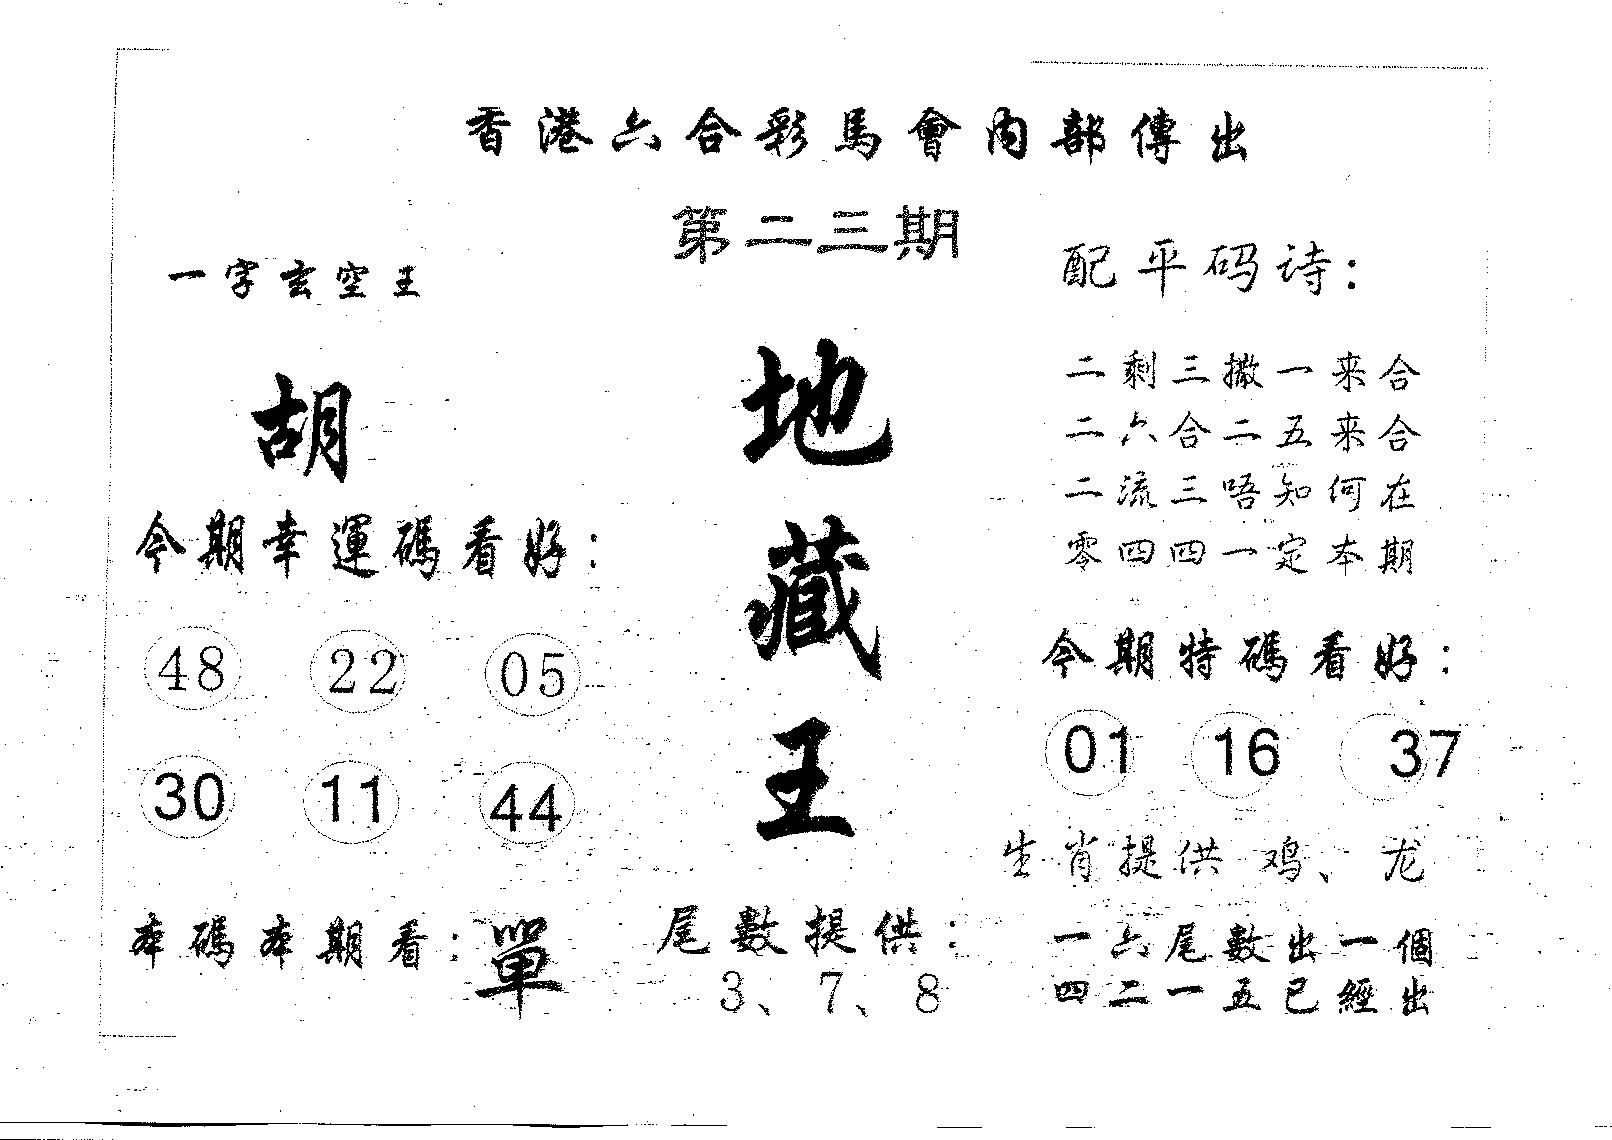 香港六合彩馬會內部傳出
第二三期
一字玄空王
胡
今期幸運碼看好：
48 22 05
30 11 44
本碼本期看：單
地藏王
尾數提供：
3、7、8
配平码诗：
二剩三撒一来合
二六合二五来合
二流三唔知何在
零四四一定本期
今期特碼看好：
01 16 37
生肖提供 鸡、龙
一六尾數出一個
四二一五已經出